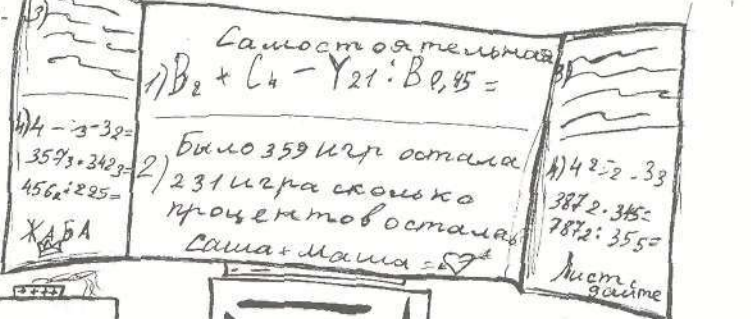 3)
4) 4 - 3 - 32=
3573 · 3423=
4562 : 225=
ЖАБА
Самостоятельная
1) B2 + C4 - Y21 : B0,45 =
2) Было 359 игр остала
231 игра сколько
процентов осталас
Саша + Маша =
3)
4) 42 - 2 - 33
3872 · 345=
7872 : 355=
Лист
дайте